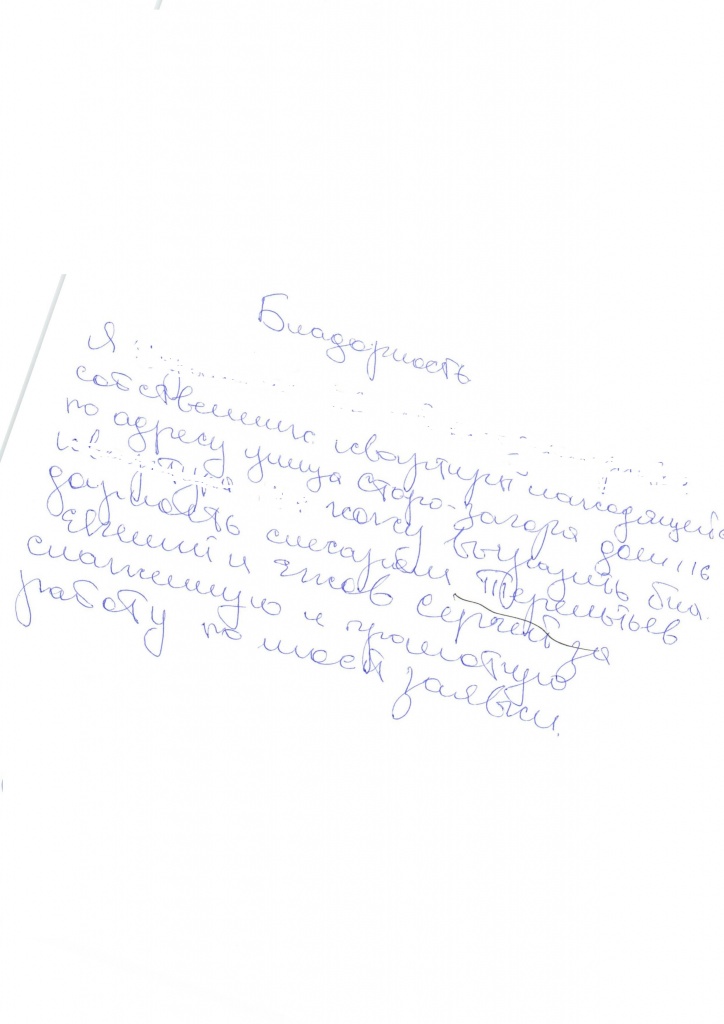 Благодарность
Я
собственник квартиры находящейся
по адресу улица Старо-Загора дом 116
хочу выразить бла
дарность слесарям Терентьев
Евгений и Ежов Сергей за
слаженную и грамотную
работу по моей заявки.